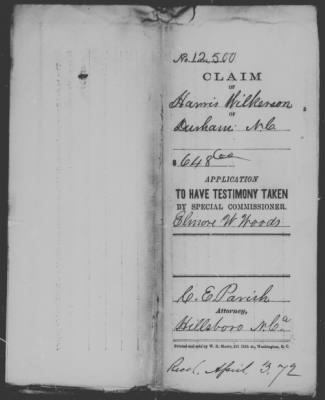 No. 12,500
CLAIM
OF
Harris Wilkerson
OF
Durham N.C
$648.00
APPLICATION
TO HAVE TESTIMONY TAKEN
BY SPECIAL COMMISSIONER.
Elmore W Woods
C. E. Parish
Attorney,
Hillsboro N.Ca
Printed and sold by W. H. Moore, 511 11th st., Washington, D. C.
Recd. April 3. 72